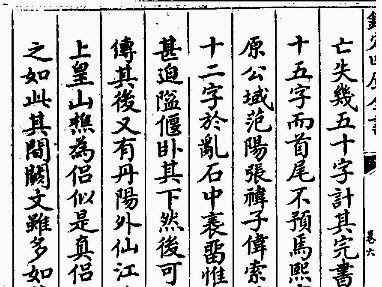 欽定四庫全書
卷六
亡失幾五十字計其完書
十五字而首尾不預焉熙
原公域范陽張禕子偉索
十二字於亂石中裒留惟
甚迫隘偃卧其下然後可
傳其後又有丹陽外仙江
上皇山樵為侶似是真侶
之如此其間闕文雖多如